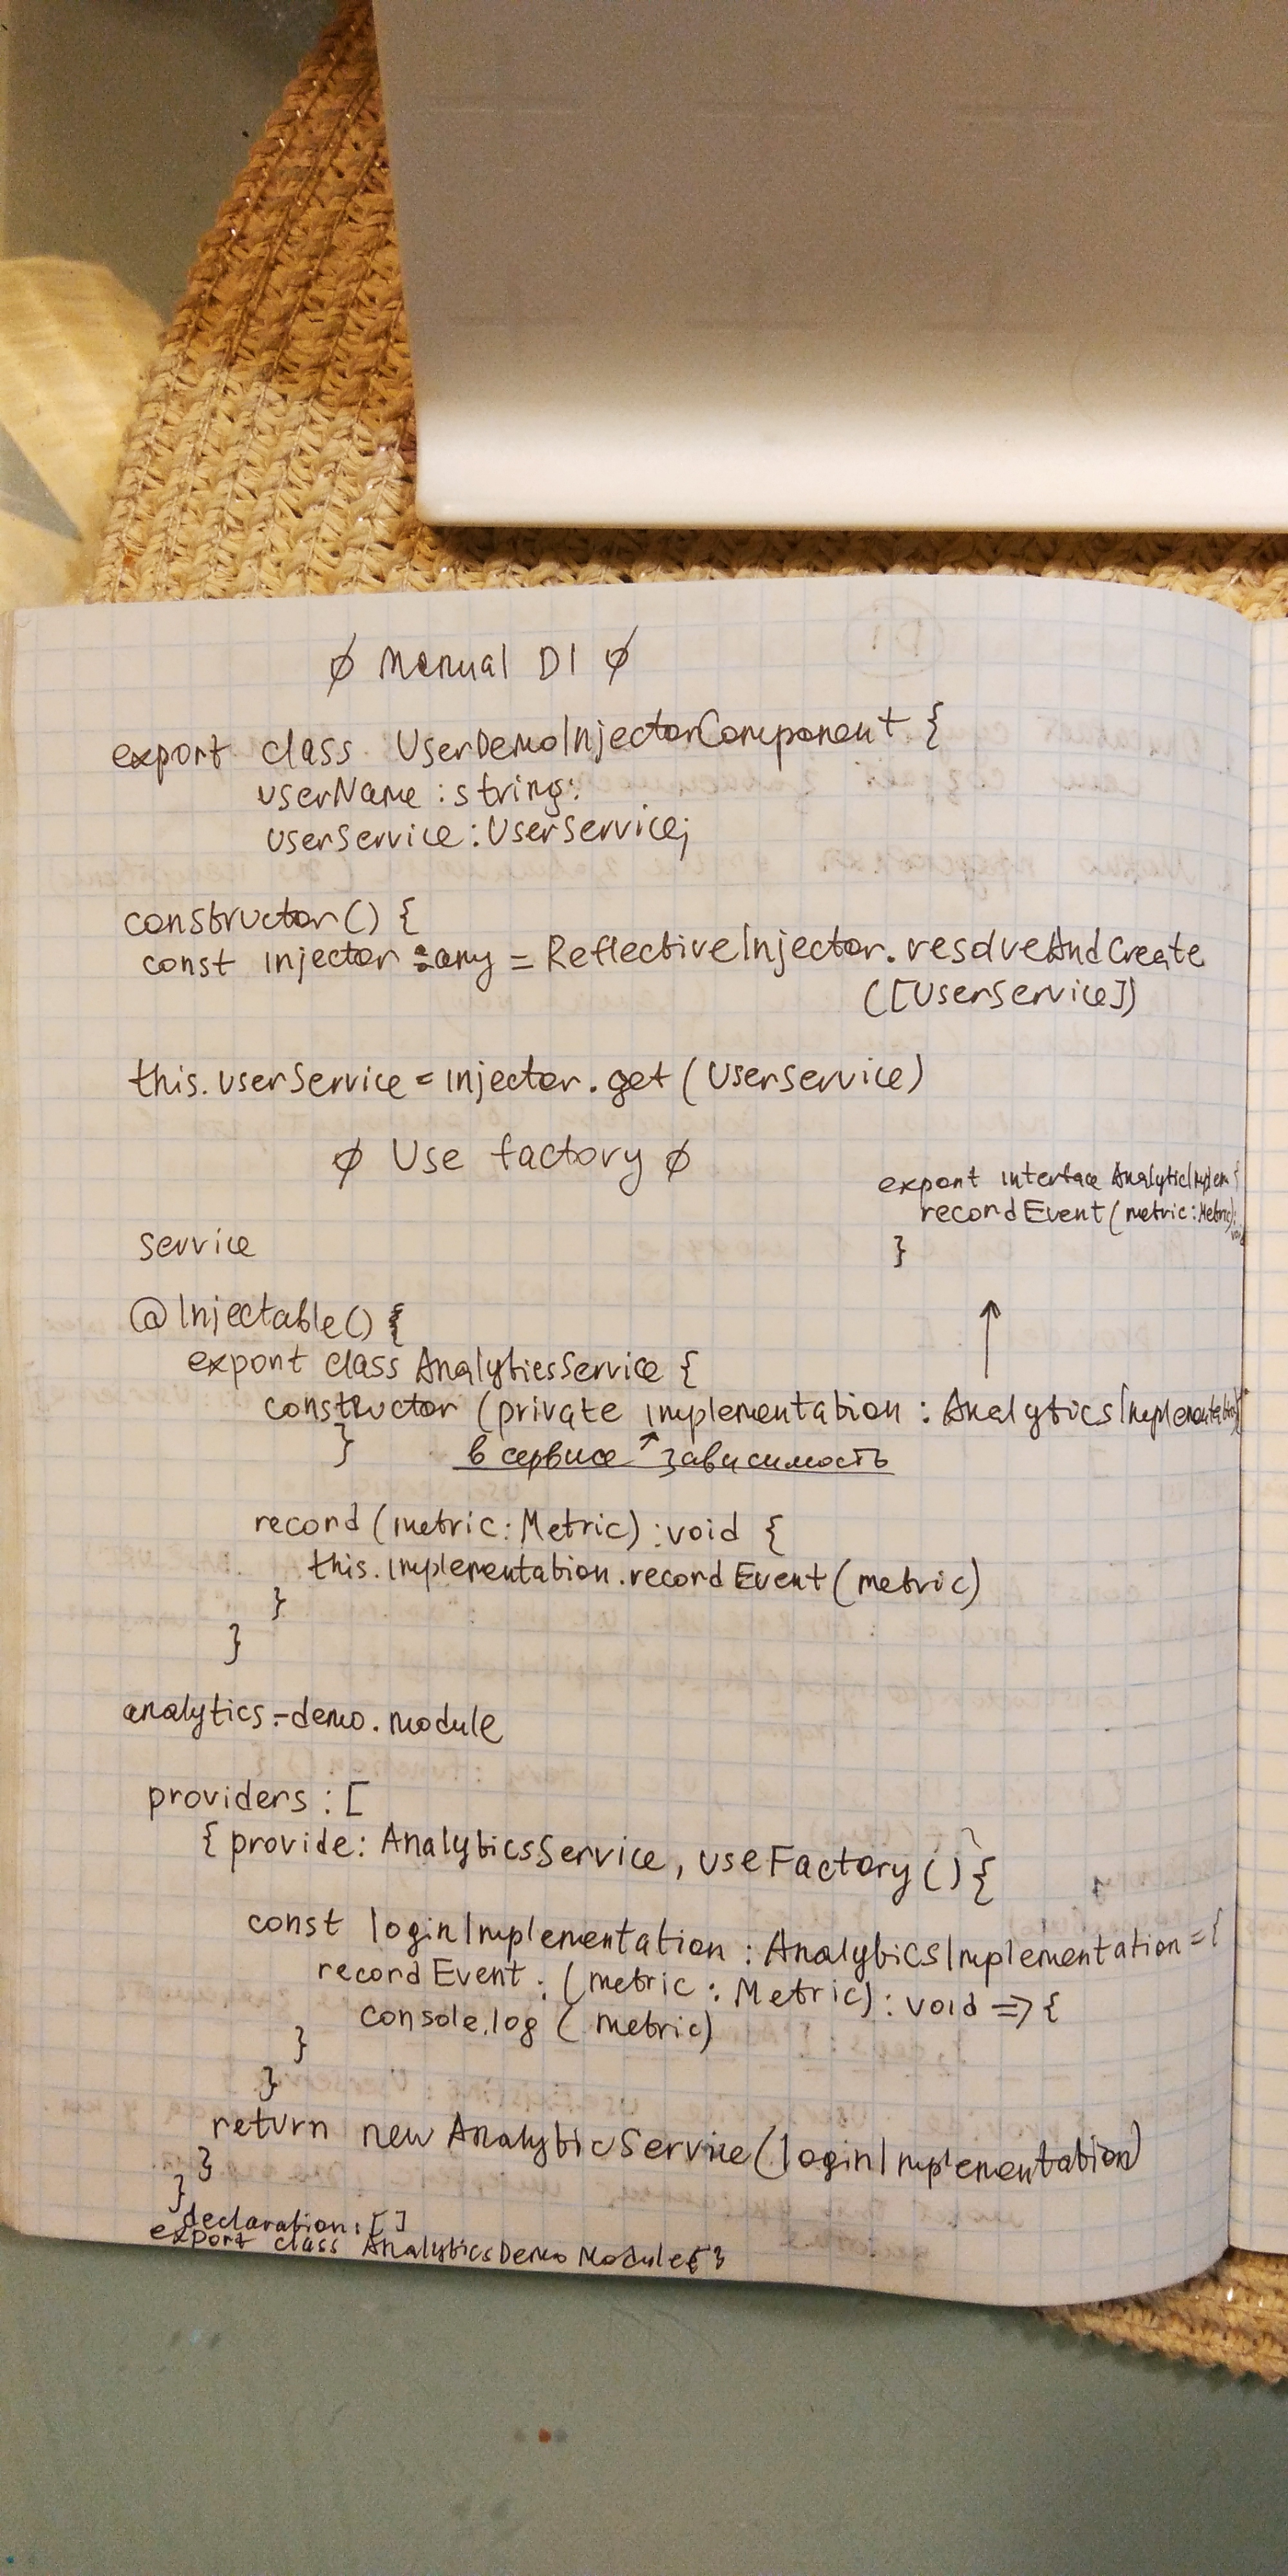 ∅ Manual DI ∅
export class UserDemoInjectorComponent {
userName : string;
userService : UserService;
constructor() {
const injector : any = ReflectiveInjector.resolveAndCreate
([UserService])
this.userService = injector.get(UserService)
∅ Use factory ∅
export interface AnalyticImplem {
recordEvent(metric:Metric):
void
}
service
@Injectable() {
export class AnalyticsService {
constructor (private implementation : AnalyticsImplementation)
}
в сервисе зависимость
record (metric: Metric) : void {
this.implementation.recordEvent(metric)
}
}
analytics-demo.module
providers : [
{ provide: AnalyticsService, useFactory () {
const loginImplementation : AnalyticsImplementation = {
recordEvent : (metric : Metric) : void => {
console.log ( metric)
}
}
return new AnalyticService(loginImplementation)
}
}
declaration: []
export class AnalyticsDemoModule {}